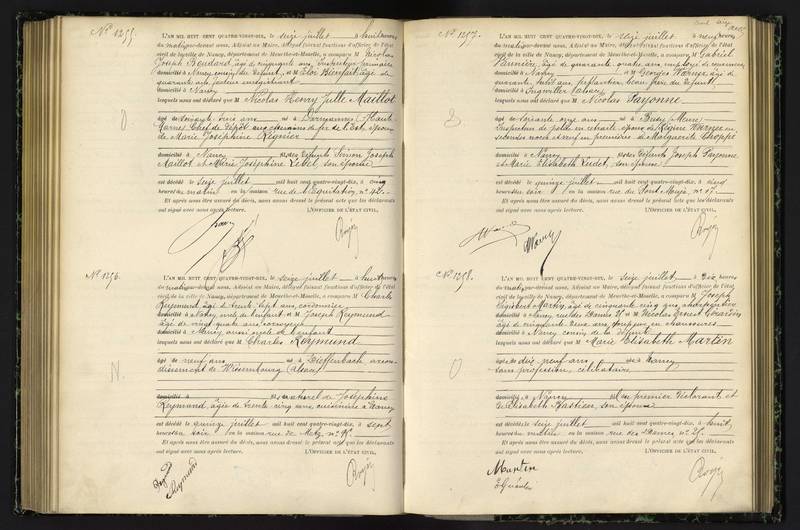 N° 1255.
L'AN MIL HUIT CENT QUATRE-VINGT-DIX, le seize juillet à huit heures
du matin par-devant nous, Adjoint au Maire, délégué faisant fonctions d'officier de l'état
civil de la ville de Nancy, département de Meurthe-et-Moselle, a comparu M Nicolas
Joseph âgé de cinquante ans, primaire
domicilié à Nancy, du défunt, et M Eloi Bienfait, âgé de
quarante ans,
domicilié à Nancy
lesquels nous ont déclaré que M Nicolas Henry Jules Maillot
âgé de soixante trois ans né à (Haute
Marne) Chef de Dépôt aux chemins de fer de l'Est, époux
de Marie Joséphine Régnier
domicilié à Nancy des défunts Simon Joseph
Maillot et Marie Joséphine Lebel, son épouse
est décédé le seize juillet mil huit cent quatre-vingt-dix, à cinq
heures du matin en la maison rue de l'Equitation, n° 42.
Et après nous être assuré du décès, nous avons dressé le présent acte que les déclarants
ont signé avec nous après lecture. L'OFFICIER DE L'ÉTAT CIVIL,
N° 1256.
L'AN MIL HUIT CENT QUATRE-VINGT-DIX, le seize juillet à huit heures
du matin par-devant nous, Adjoint au Maire, délégué faisant fonctions d'officier de l'état
civil de la ville de Nancy, département de Meurthe-et-Moselle, a comparu M Charles
Reymund, âgé de trente sept ans, cordonnier,
domicilié à Nancy, oncle de l'enfant et M Joseph Reymund
âgé de vingt quatre ans,
domicilié à Nancy, aussi oncle de l'enfant
lesquels nous ont déclaré que Charles Reymund
âgé de neuf ans né à Dieffenbach, arron-
dissement de Wissembourg (Alsace)
domicilié à fils naturel de Joséphine
Reymund, âgée de trente cinq ans, cuisinière à Nancy
est décédé le quinze juillet mil huit cent quatre-vingt-dix, à sept
heures du soir en la maison rue de Metz, n°
Et après nous être assuré du décès, nous avons dressé le présent acte que les déclarants
ont signé avec nous après lecture. L'OFFICIER DE L'ÉTAT CIVIL,
Reymund
N° 1257.
L'AN MIL HUIT CENT QUATRE-VINGT-DIX, le seize juillet à neuf heures
du matin par-devant nous, Adjoint au Maire, délégué faisant fonctions d'officier de l'état
civil de la ville de Nancy, département de Meurthe-et-Moselle, a comparu M Gabriel
âgé de quarante quatre ans, employé de commerce,
domicilié à Nancy et M Georges âgé de
quarante ans, beau frère du défunt,
domicilié à Ingwiller (Alsace)
lesquels nous ont déclaré que M Nicolas Payonne
âgé de soixante onze ans né à (Meuse)
Inspecteur de police en retraite, époux de Régine en
secondes noces et veuf en premières de Marguerite
domicilié à Nancy des défunts Joseph Payonne
et Marie Elisabeth son épouse
est décédé le quinze juillet mil huit cent quatre-vingt-dix, à cinq
heures du soir en la maison rue du Pont Mouja, n° 17.
Et après nous être assuré du décès, nous avons dressé le présent acte que les déclarants
ont signé avec nous après lecture. L'OFFICIER DE L'ÉTAT CIVIL,
N° 1258.
L'AN MIL HUIT CENT QUATRE-VINGT-DIX, le seize juillet à dix heures
du matin par-devant nous, Adjoint au Maire, délégué faisant fonctions d'officier de l'état
civil de la ville de Nancy, département de Meurthe-et-Moselle, a comparu M Joseph
Martin, âgé de cinquante cinq ans,
domicilié à Nancy, rue des et M Nicolas Ernest
âgé de cinquante deux ans, en chaussures
domicilié à Nancy, cousin de la défunte
lesquels nous ont déclaré que M Marie Elisabeth Martin
âgée de dix neuf ans née à Nancy
sans profession, célibataire
domiciliée à Nancy du premier déclarant et
de Elisabeth Bastien, son épouse
est décédée le seize juillet mil huit cent quatre-vingt-dix, à huit
heures du matin en la maison rue des
Et après nous être assuré du décès, nous avons dressé le présent acte que les déclarants
ont signé avec nous après lecture. L'OFFICIER DE L'ÉTAT CIVIL,
Martin